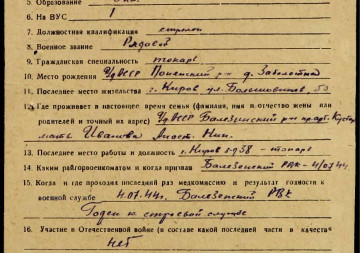 5. Образование
6. На ВУС 1
7. Должностная квалификация стрелок
8. Военное звание Рядовой
9. Гражданская специальность токарь
10. Место рождения УдАССР р-н д.
11. Последнее место жительства г. Киров ул. Большевиков, 50
12. Где проживает в настоящее время семья (фамилия, имя и отчество жены или
родителей и точный их адрес) УдАССР Балезинский р-н
мать Иванова
13. Последнее место работы и должность г. Киров токарь
14. Каким райгорвоенкоматом и когда призван Балезинский РВК - 4/07.44
15. Когда и где проходил последний раз медкомиссию и результат годности к
военной службе 4.07.44г. Балезинский РВК
Годен к строевой службе
16. Участие в Отечественной войне (в составе какой последней части в качестве
нет